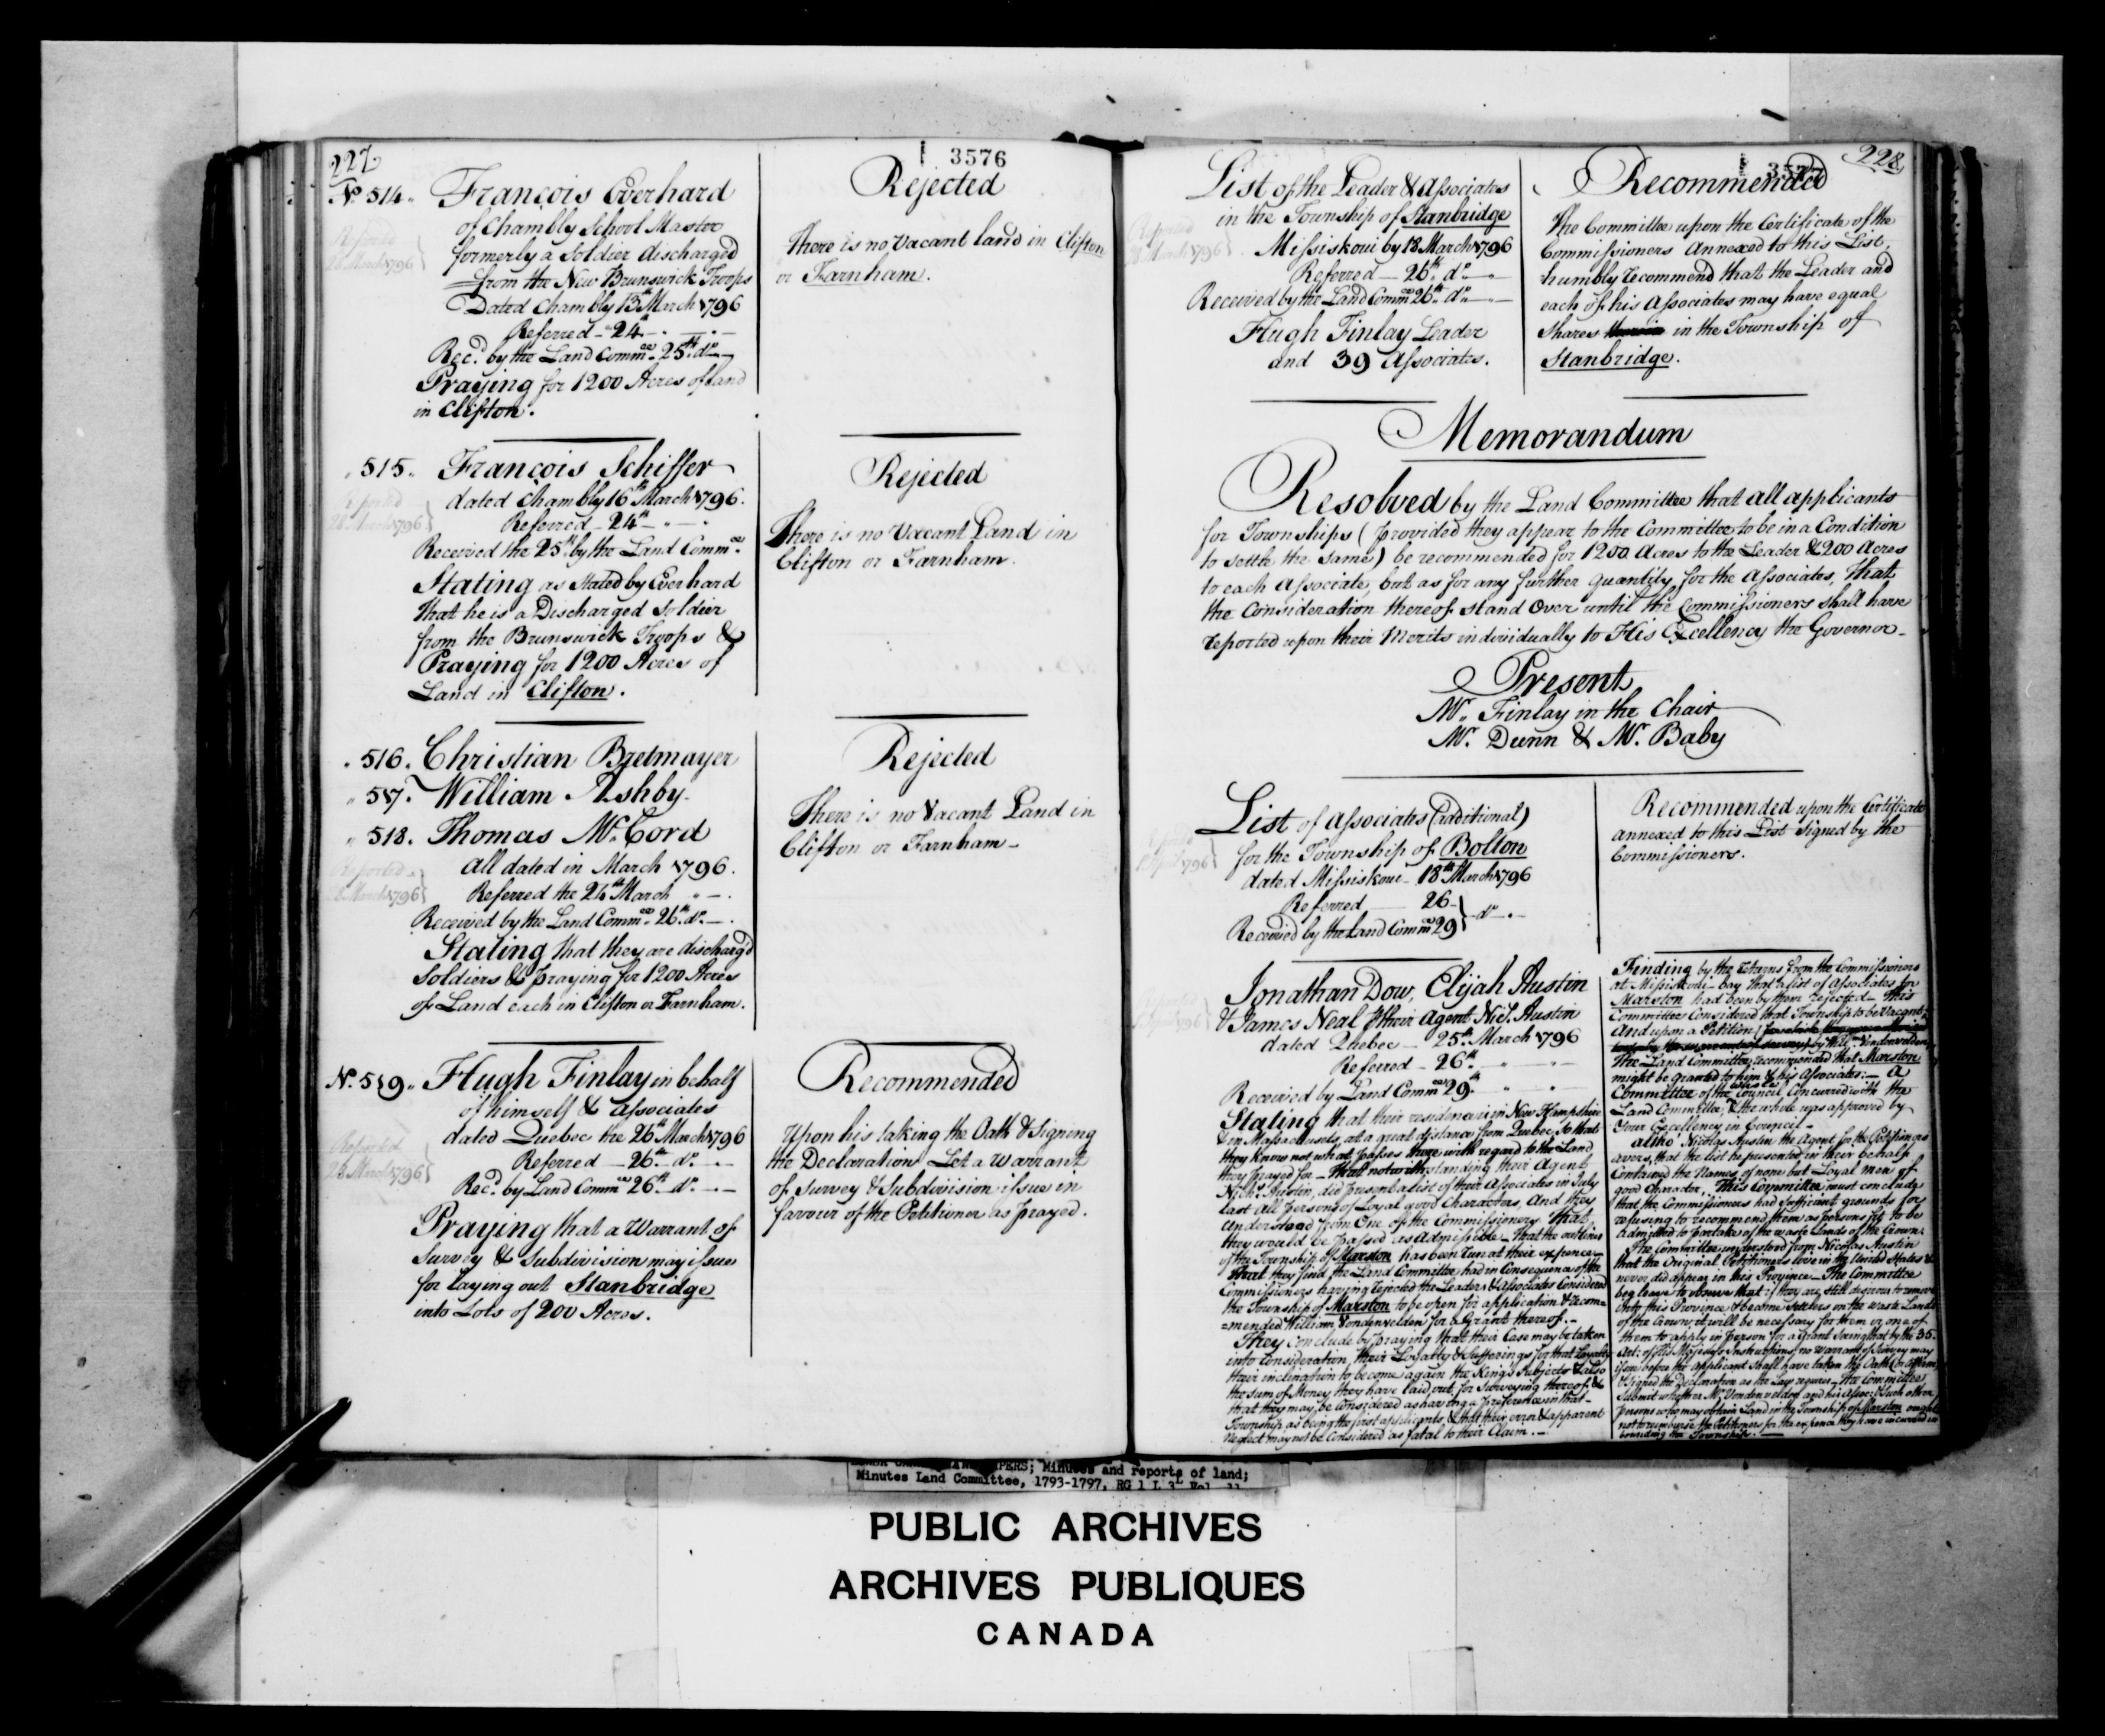 227
3576
No. 514. François Everhard
of Chambly School Master
formerly a Soldier discharged
from the New Brunswick Troops
Dated Chambly 13th March 1796
Referred - 24 - " - " -
Rec'd by the Land Commee. 25th do. -
Praying for 1200 Acres of Land
in Clifton.
Reported
26 March 1796
Rejected
There is no vacant land in Clifton
or Farnham.
" 515. François Schiffer
dated Chambly 16th March 1796.
Referred - 24th - " - "
Received the 25th by the Land Commee.
Stating as stated by Everhard
that he is a Discharged Soldier
from the Brunswick Troops &
Praying for 1200 Acres of
Land in Clifton.
Reported
26 March 1796
Rejected
There is no Vacant Land in
Clifton or Farnham.
" 516. Christian Bretmayer
" 517. William Ashby
" 518. Thomas McCord
all dated in March 1796.
Referred the 26th March " - .
Received by the Land Commee 26th do. - .
Stating that they are discharg'd
Soldiers & praying for 1200 Acres
of Land each in Clifton or Farnham.
Reported
March 1796
Rejected
There is no Vacant Land in
Clifton or Farnham -
No. 519. Hugh Finlay in behalf
of himself & Associates
dated Quebec the 26th March 1796
Referred - 26th - do. - . -
Rec'd. by Land Commee 26th do. - . -
Praying that a Warrant of
Survey & Subdivision may issue
for laying out Stanbridge
into Lots of 200 Acres.
Reported
26 March 1796
Recommended
Upon his taking the Oath & Signing
the Declaration Let a Warrant
of Survey & Subdivision issue in
favour of the Petitioner as prayed.
228
List of the Leader & Associates
in the Township of Stanbridge
Missiskoui by 18 March 1796
Referred - 26th do. -
Received by the Land Commee 26th do. -
Hugh Finlay Leader
and 39 Associates.
Reported
March 1796
Recommended
The Committee upon the Certificate of the
Commissioners Annexed to this List,
humbly recommend that the Leader and
each of his Associates may have equal
Shares therein in the Township of
Stanbridge.
Memorandum
Resolved by the Land Committee that all applicants
for Townships (provided they appear to the Committee to be in a Condition
to settle the same) be recommended for 1200 Acres to the Leader & 200 Acres
to each Associate, but as for any further quantity, for the Associates, that
the Consideration thereof stand over until the Commissioners shall have
reported upon their Merits individually to His Excellency the Governor -
Present
Mr. Finlay in the Chair
Mr. Dunn & Mr. Baby
List of Associates (additional)
for the Township of Bolton
dated Missiskoui - 18th March 1796
Referred 26
Received by the Land Commee 29 } do - . -
April 1796
Recommended upon the Certificate
annexed to this List Signed by the
Commissioners.
Jonathan Dow, Elijah Austin
& James Neal p their Agent Nics. Austin
dated Quebec - 25th March 1796
Referred - 26th "
Received by Land Commee 29th "
Stating that their residence is in New Hampshire
& in Massachusets, at a great distance from Quebec, so that
they know not what passes there with regard to the Land
they prayed for - That notwithstanding their Agent
Nichs. Austin, did present a list of their Associates in July
last all persons of Loyal good Characters, And they
understood from One of the Commissioners that
they would be passed as Admissible - That the outlines
of the Township of Marston has been run at their expence -
That they find the Land Committee had in Consequence of the
Commissioners having rejected the Leaders & Associates Considered
the Township of Marston to be open for application & recom=
=mended William Vondenvelden for a Grant thereof. -
They conclude by praying that their Case may be taken
into consideration, their Loyalty & Sufferings for that Loyalty
their inclination to become again the Kings Subjects & also
the sum of Money they have laid out for Surveying thereof; &
that they may be Considered as having a preference in that -
Township as being the first applicants, & that their error & apparent
Neglect may not be Considered as fatal to their Claim. -
Finding by the returns from the Commissioners
at Missiskoui - bay that a list of Associates for
Marston had been by them rejected - This
Committee Considered that Township to be Vacant;
And upon a Petition by Willm. Vondenvelden
The Land Committee recommended that Marston
might be granted to him & his Associates: - A
Committee of the whole Council Concurred with the
Land Committee, & the whole was approved by
Your Excellency in Council -
Altho' Nicolas Austin the Agent for the Petitioners
avers, that the list he presented in their behalf
Contained the Names of none but Loyal men of
good Character, This Committee must conclude
that the Commissioners had sufficient grounds for
refusing to recommend them as persons fit to be
admitted to partake of the waste Lands of the Crown.
The Committee understood from Nicolas Austin
that the Original Petitioners live in the United States &
never did appear in this Province - The Committee
beg leave to observe that if they are still desirous to remove
into this Province & become Settlers on the waste Lands
of the Crown, it will be necessary for them or one of
them to apply in person for a Grant seeing that by the 35.
Art: of His Majesty's Instructions, no warrant of Survey may
issue before the applicant shall have taken the Oath
& Signed the Declaration as the Law requires - The Committee
Submit whether Mr. Vondenvelden and his Assoc: & such other
persons who may obtain Land in the Township of Marston ought
not to reimburse the Petitioners for the expence they have incurred in
bounding the Township. -
PAPERS; Minutes and reports of land;
Minutes Land Committee, 1793-1797, RG 1 L 3L Vol. 11
PUBLIC ARCHIVES
ARCHIVES PUBLIQUES
CANADA